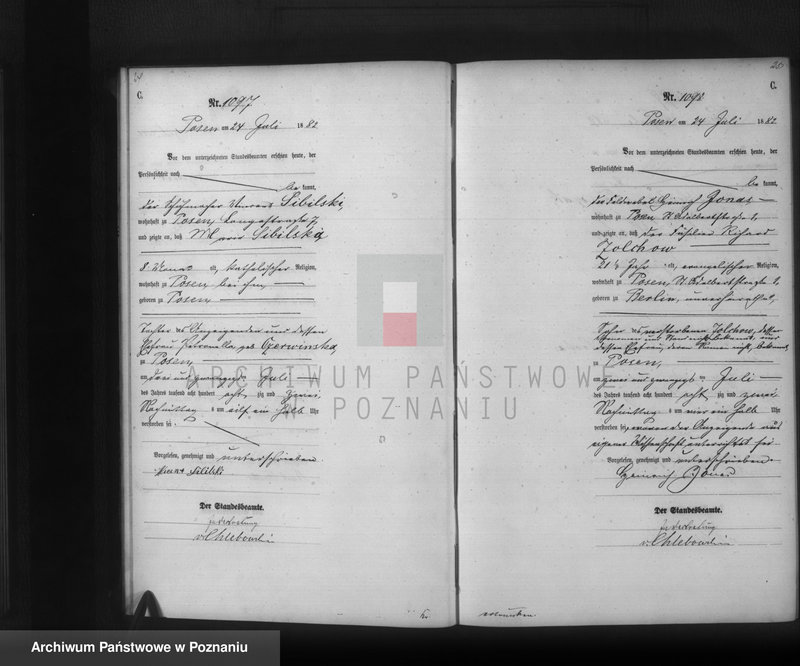 C.
Nr. 1097
Posen am 24 Juli 1882
Vor dem unterzeichneten Standesbeamten erschien heute, der
Persönlichkeit nach
be kannt,
der Schuhmacher Sibilski,
wohnhaft zu Posen,
und zeigte an, daß Sibilska
8 Monat alt, katholischer Religion,
wohnhaft zu Posen bei ihm
geboren zu Posen
Tochter des Anzeigenden und dessen
Ehefrau Petronella geb. Czerwinska,
zu Posen
am drei und zwanzigsten Juli
des Jahres tausend acht hundert acht zig und zwei,
Nachmittag s um elf ein halb Uhr
verstorben sei
Vorgelesen, genehmigt und unterschrieben
Sibilski
Der Standesbeamte.
In Vertretung
v. Chlebowski
20
C.
Nr. 1098
Posen am 24 Juli 1882
Vor dem unterzeichneten Standesbeamten erschien heute, der
Persönlichkeit nach
be kannt,
Heinrich Jonas
wohnhaft zu Posen St. Adalbertstraße 1,
und zeigte an, daß der Richard
Zolchow
21 ½ Jahr alt, evangelischer Religion,
wohnhaft zu Posen, St. Adalbertstraße 1,
geboren zu Berlin, unverheirathet,
Sohn des verstorbenen Zolchow, dessen
und dessen Ehefrau, deren Name nicht bekannt,
zu Posen,
am zwei und zwanzigsten Juli
des Jahres tausend acht hundert acht zig und zwei,
Nachmittag s um vier ein halb Uhr
verstorben sei, wovon der Anzeigende aus
eigener Wissenschaft unterrichtet sei
Vorgelesen, genehmigt und unterschrieben
Heinrich Jonas
Der Standesbeamte.
In Vertretung
v. Chlebowski
ARCHIWUM PAŃSTWOWE
W POZNANIU
Archiwum Państwowe w Poznaniu